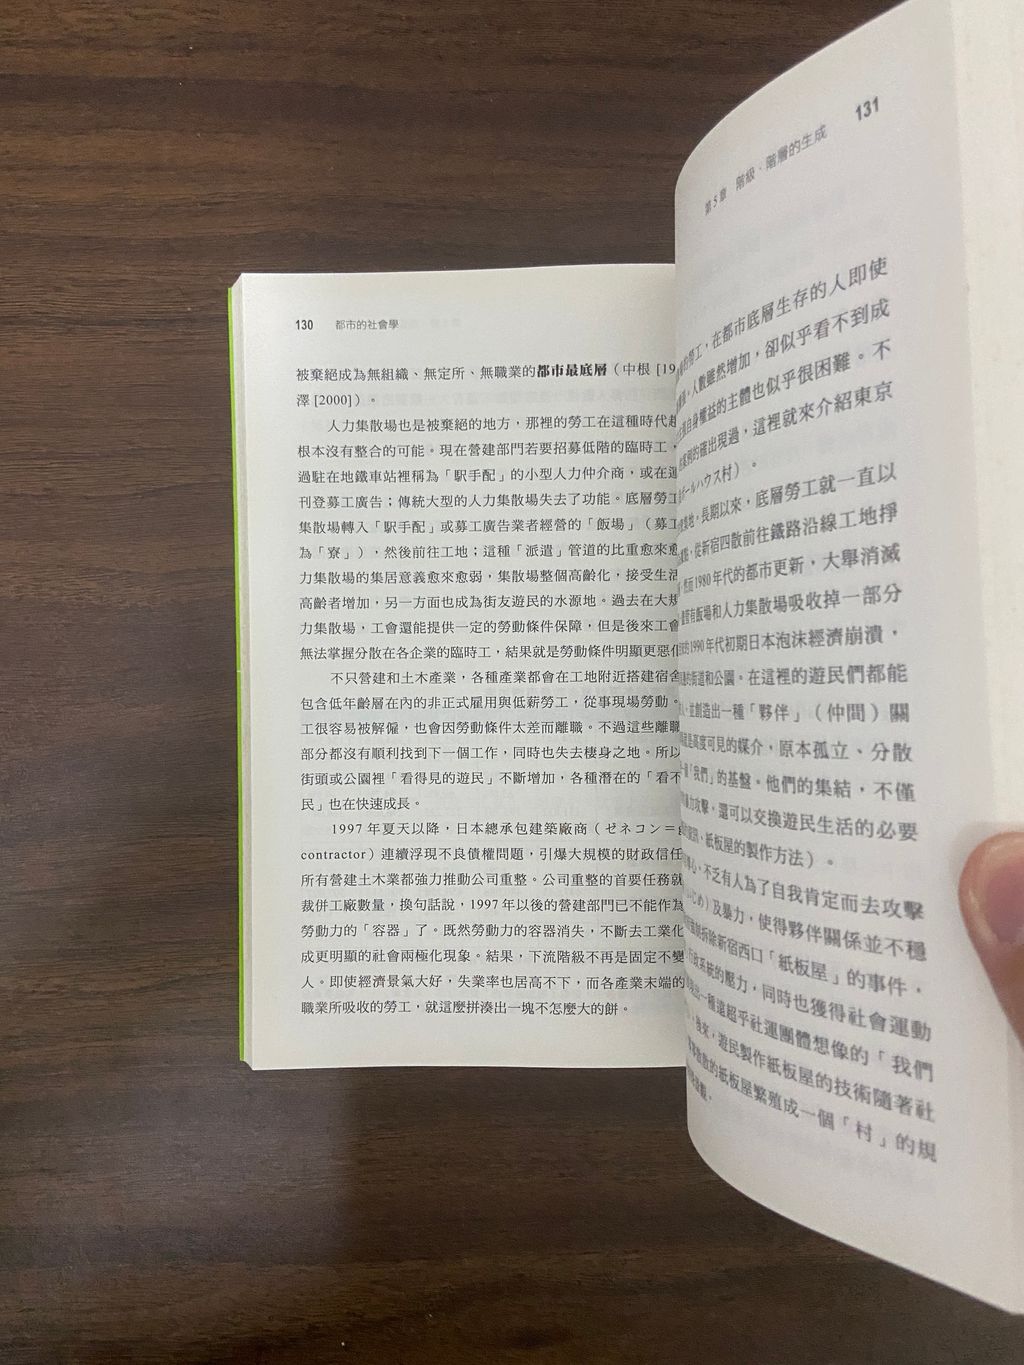 130 都市的社會學
被棄絕成為無組織、無定所、無職業的都市最底層（中根 [19
澤 [2000]）。
人力集散場也是被棄絕的地方，那裡的勞工在這種時代趨
根本沒有整合的可能。現在營建部門若要招募低階的臨時工，
過駐在地鐵車站裡稱為「駅手配」的小型人力仲介商，或在週
刊登募工廣告；傳統大型的人力集散場失去了功能。底層勞工
集散場轉入「駅手配」或募工廣告業者經營的「飯場」（募工
為「寮」），然後前往工地；這種「派遣」管道的比重愈來愈
力集散場的集居意義愈來愈弱，集散場整個高齡化，接受生活
高齡者增加，另一方面也成為街友遊民的水源地。過去在大規
力集散場，工會還能提供一定的勞動條件保障，但是後來工會
無法掌握分散在各企業的臨時工，結果就是勞動條件明顯更惡化
不只營建和土木產業，各種產業都會在工地附近搭建宿舍
包含低年齡層在內的非正式雇用與低薪勞工，從事現場勞動。
工很容易被解僱，也會因勞動條件太差而離職。不過這些離職
部分都沒有順利找到下一個工作，同時也失去棲身之地。所以
街頭或公園裡「看得見的遊民」不斷增加，各種潛在的「看不
民」也在快速成長。
1997 年夏天以降，日本總承包建築廠商（ゼネコン＝g
contractor）連續浮現不良債權問題，引爆大規模的財政信任
所有營建土木業都強力推動公司重整。公司重整的首要任務就
裁併工廠數量，換句話說，1997 年以後的營建部門已不能作為
勞動力的「容器」了。既然勞動力的容器消失，不斷去工業化
成更明顯的社會兩極化現象。結果，下流階級不再是固定不變
人。即使經濟景氣大好，失業率也居高不下，而各產業末端的
職業所吸收的勞工，就這麼拼湊出一塊不怎麼大的餅。
第 5 章 階級、階層的生成 131
的勞工，在都市底層生存的人即使
人數雖然增加，卻似乎看不到成
自身權益的主體也似乎很困難。不
的確出現過，這裡就來介紹東京
ボールハウス村）。
長期以來，底層勞工就一直以
從新宿四散前往鐵路沿線工地掙
1980 年代的都市更新，大舉消滅
有飯場和人力集散場吸收掉一部分
的1990 年代初期日本泡沫經濟崩潰，
的街道和公園。在這裡的遊民們都能
並創造出一種「夥伴」（仲間）關
是高度可見的媒介，原本孤立、分散
「我們」的基盤。他們的集結，不僅
力攻擊，還可以交換遊民生活的必要
紙板屋的製作方法）。
心，不乏有人為了自我肯定而去攻擊
じめ）及暴力，使得夥伴關係並不穩
拆除新宿西口「紙板屋」的事件，
行政系統的壓力，同時也獲得社會運動
一種遠超乎社運團體想像的「我們
後來，遊民製作紙板屋的技術隨著社
的紙板屋繁殖成一個「村」的規